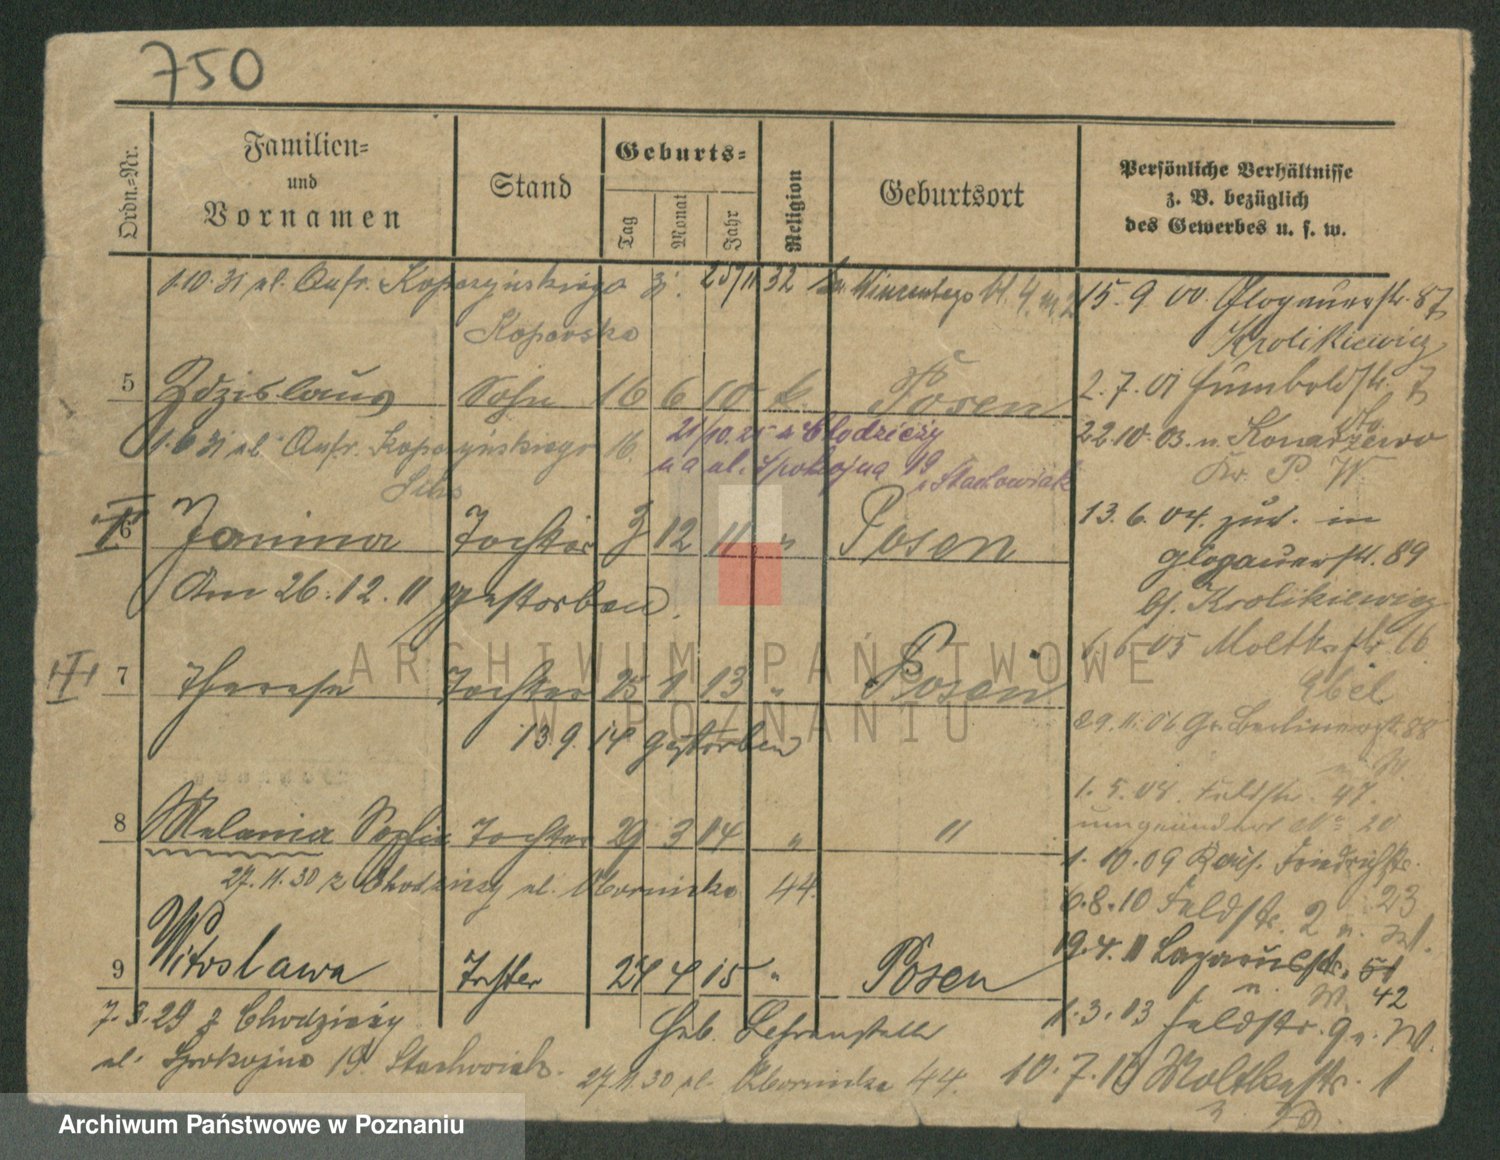 750
Ordn.-Nr.
Familien-
und
Vornamen
Stand
Geburts-
Tag
Monat
Jahr
Religion
Geburtsort
Persönliche Verhältnisse
z. B. bezüglich
des Gewerbes u. s. w.
1.10.31 ul. Kopczyńskiego 3 25/11 32
15. 9 00. Glogauerstr. 87
Krolikiewicz
5 Zdzislaus Sohn 16 6 10 k. Posen
2. 7. 01 Humboldstr. 7
1.6 31 ul. Kopczyńskiego 16.
21/10.25 z Chodzieży
na ul. Spokojna 19 Stachowiak
22.10.03. n. Konarzewo
Kr. P. W
6 Janina Tochter 3 12 11 " Posen
Am 26.12.11 gestorben.
13. 6. 04. zur. in
Glogauerstr. 89
bf. Krolikiewicz
7 Therese Tochter 25 1 13 " Posen
13.9.14 gestorben
6. 6 05 Moltkestr. 16
29.11.06 Gr. Berlinerst. 88
1. 5. 08. Feldstr. 47.
umgeändert No 20
8 Melania Sophie Tochter 29 3 14 " "
27.11.30 z Chodzieży ul. Obornicka 44.
1. 10.09 Kais. Friedrichstr.
23
6.8.10 Feldstr. 2 n. W.
9 Witoslawa Tochter 24 4 15 " Posen
19.4.11 Lazarusstr. 51
n. W. 42
7.3.29 z Chodzieży
ul. Spokojna 19. Stachowiak.
1.3.13 Feldstr. 9 n. W.
27.11.30 ul. Obornicka 44.
10.7.13 Moltkestr. 1
ARCHIWUM PAŃSTWOWE
W POZNANIU
Archiwum Państwowe w Poznaniu